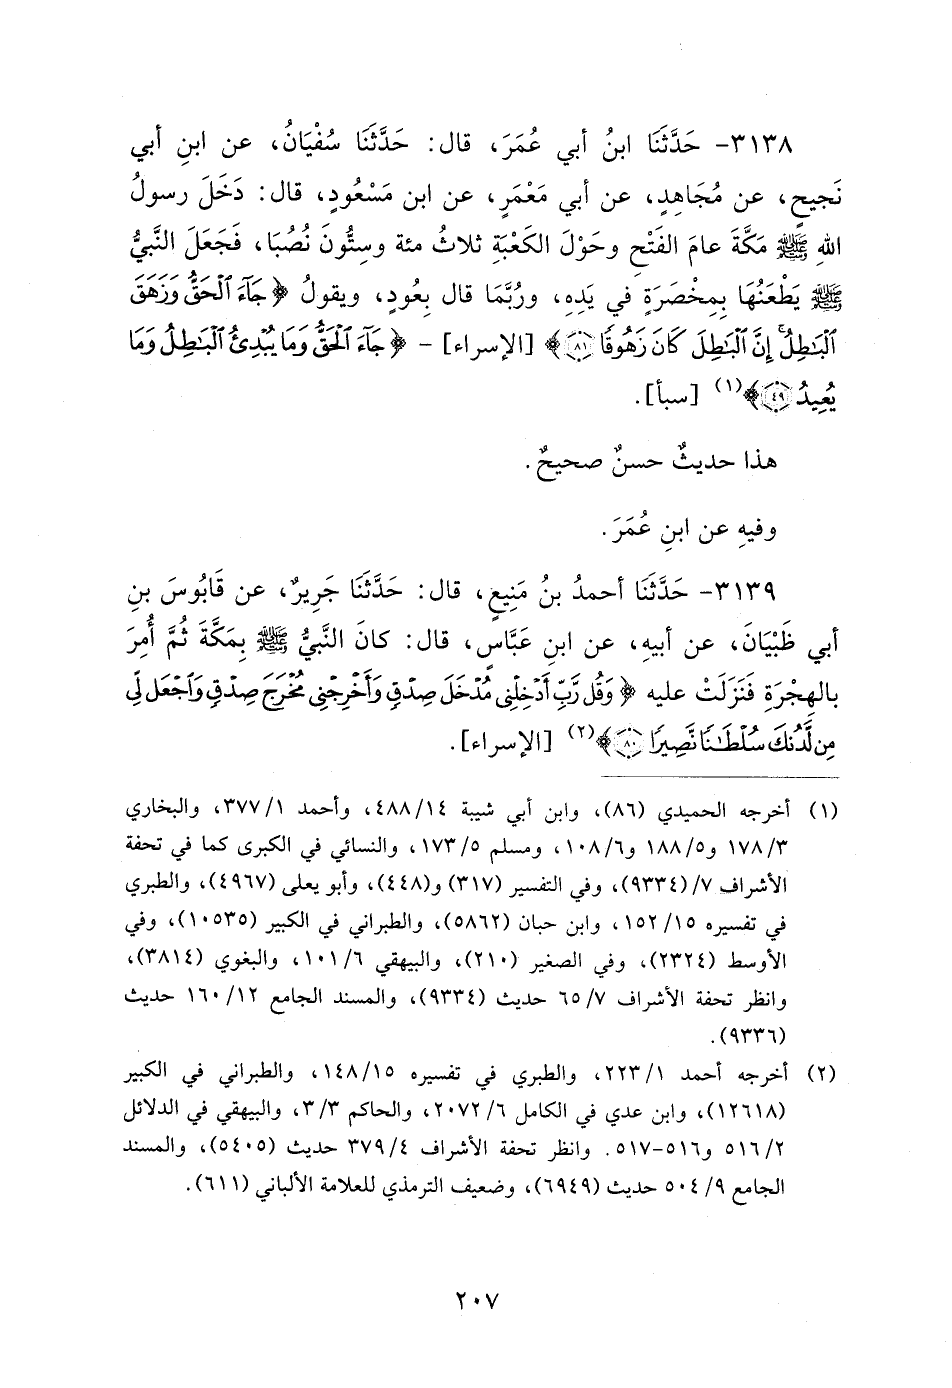 ٣١٣٨- حَدَّثَنَا ابنُ أبي عُمَرَ، قال: حَدَّثَنَا سُفْيَانُ، عن ابنِ أبي
نَجيحٍ، عن مُجَاهِدٍ، عن أبي مَعْمَرٍ، عن ابن مَسْعُودٍ، قال: دَخَلَ رسولُ
اللهِ ﷺ مَكَّةَ عامَ الفَتْحِ وحَوْلَ الكَعْبَةِ ثلاثُ مئة وسِتُّونَ نُصُبَا، فَجَعَلَ النَّبيُّ
ﷺ يَطْعَنُهَا بِمِخْصَرَةٍ في يَدِهِ، ورُبَّمَا قال بِعُودٍ، ويقولُ ﴿ جَآءَ ٱلْحَقُّ وَزَهَقَ
ٱلْبَٰطِلُ ۚ إِنَّ ٱلْبَٰطِلَ كَانَ زَهُوقًا ٨١ ﴾ [الإسراء] - ﴿ جَآءَ ٱلْحَقُّ وَمَا يُبْدِئُ ٱلْبَٰطِلُ وَمَا
يُعِيدُ ٤٩ ﴾(١) [سبأ].
هذا حديثٌ حسنٌ صحيحٌ.
وفيهِ عن ابنِ عُمَرَ.
٣١٣٩- حَدَّثَنَا أحمدُ بنُ مَنِيعٍ، قال: حَدَّثَنَا جَرِيرٌ، عن قَابُوسَ بنِ
أبي ظَبْيَانَ، عن أبيهِ، عن ابنِ عَبَّاسٍ، قال: كانَ النَّبيُّ ﷺ بِمَكَّةَ ثُمَّ أُمِرَ
بالهِجْرَةِ فَنَزَلَتْ عليه ﴿ وَقُل رَّبِّ أَدْخِلْنِى مُدْخَلَ صِدْقٍ وَأَخْرِجْنِى مُخْرَجَ صِدْقٍ وَٱجْعَل لِّى
مِن لَّدُنكَ سُلْطَٰنًا نَّصِيرًا ٨٠ ﴾(٢) [الإسراء].
(١) أخرجه الحميدي (٨٦)، وابن أبي شيبة ١٤/ ٤٨٨، وأحمد ١/ ٣٧٧، والبخاري
٣/ ١٧٨ و٥/ ١٨٨ و٦/ ١٠٨، ومسلم ٥/ ١٧٣، والنسائي في الكبرى كما في تحفة
الأشراف ٧/ (٩٣٣٤)، وفي التفسير (٣١٧) و(٤٤٨)، وأبو يعلى (٤٩٦٧)، والطبري
في تفسيره ١٥/ ١٥٢، وابن حبان (٥٨٦٢)، والطبراني في الكبير (١٠٥٣٥)، وفي
الأوسط (٢٣٢٤)، وفي الصغير (٢١٠)، والبيهقي ٦/ ١٠١، والبغوي (٣٨١٤)،
وانظر تحفة الأشراف ٧/ ٦٥ حديث (٩٣٣٤)، والمسند الجامع ١٢/ ١٦٠ حديث
(٩٣٣٦).
(٢) أخرجه أحمد ١/ ٢٢٣، والطبري في تفسيره ١٥/ ١٤٨، والطبراني في الكبير
(١٢٦١٨)، وابن عدي في الكامل ٦/ ٢٠٧٢، والحاكم ٣/ ٣، والبيهقي في الدلائل
٢/ ٥١٦ و٥١٦-٥١٧. وانظر تحفة الأشراف ٤/ ٣٧٩ حديث (٥٤٠٥)، والمسند
الجامع ٩/ ٥٠٤ حديث (٦٩٤٩)، وضعيف الترمذي للعلامة الألباني (٦١١).
٢٠٧